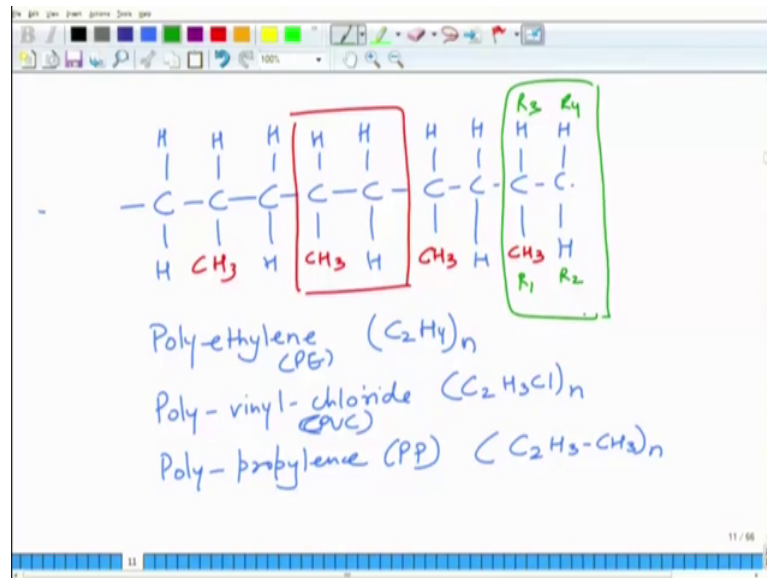 File Edit View Insert Actions Tools Help
B I
100%
R3 R4
H H H H H H H H H
- C - C - C - C - C - C - C - C - C .
H CH3 H CH3 H CH3 H CH3 H
R1 R2
Poly-ethylene (C2H4)n
(PE)
Poly-vinyl-chloride (C2H3Cl)n
(PVC)
Poly-propylence (PP) (C2H3-CH3)n
11 / 66
11